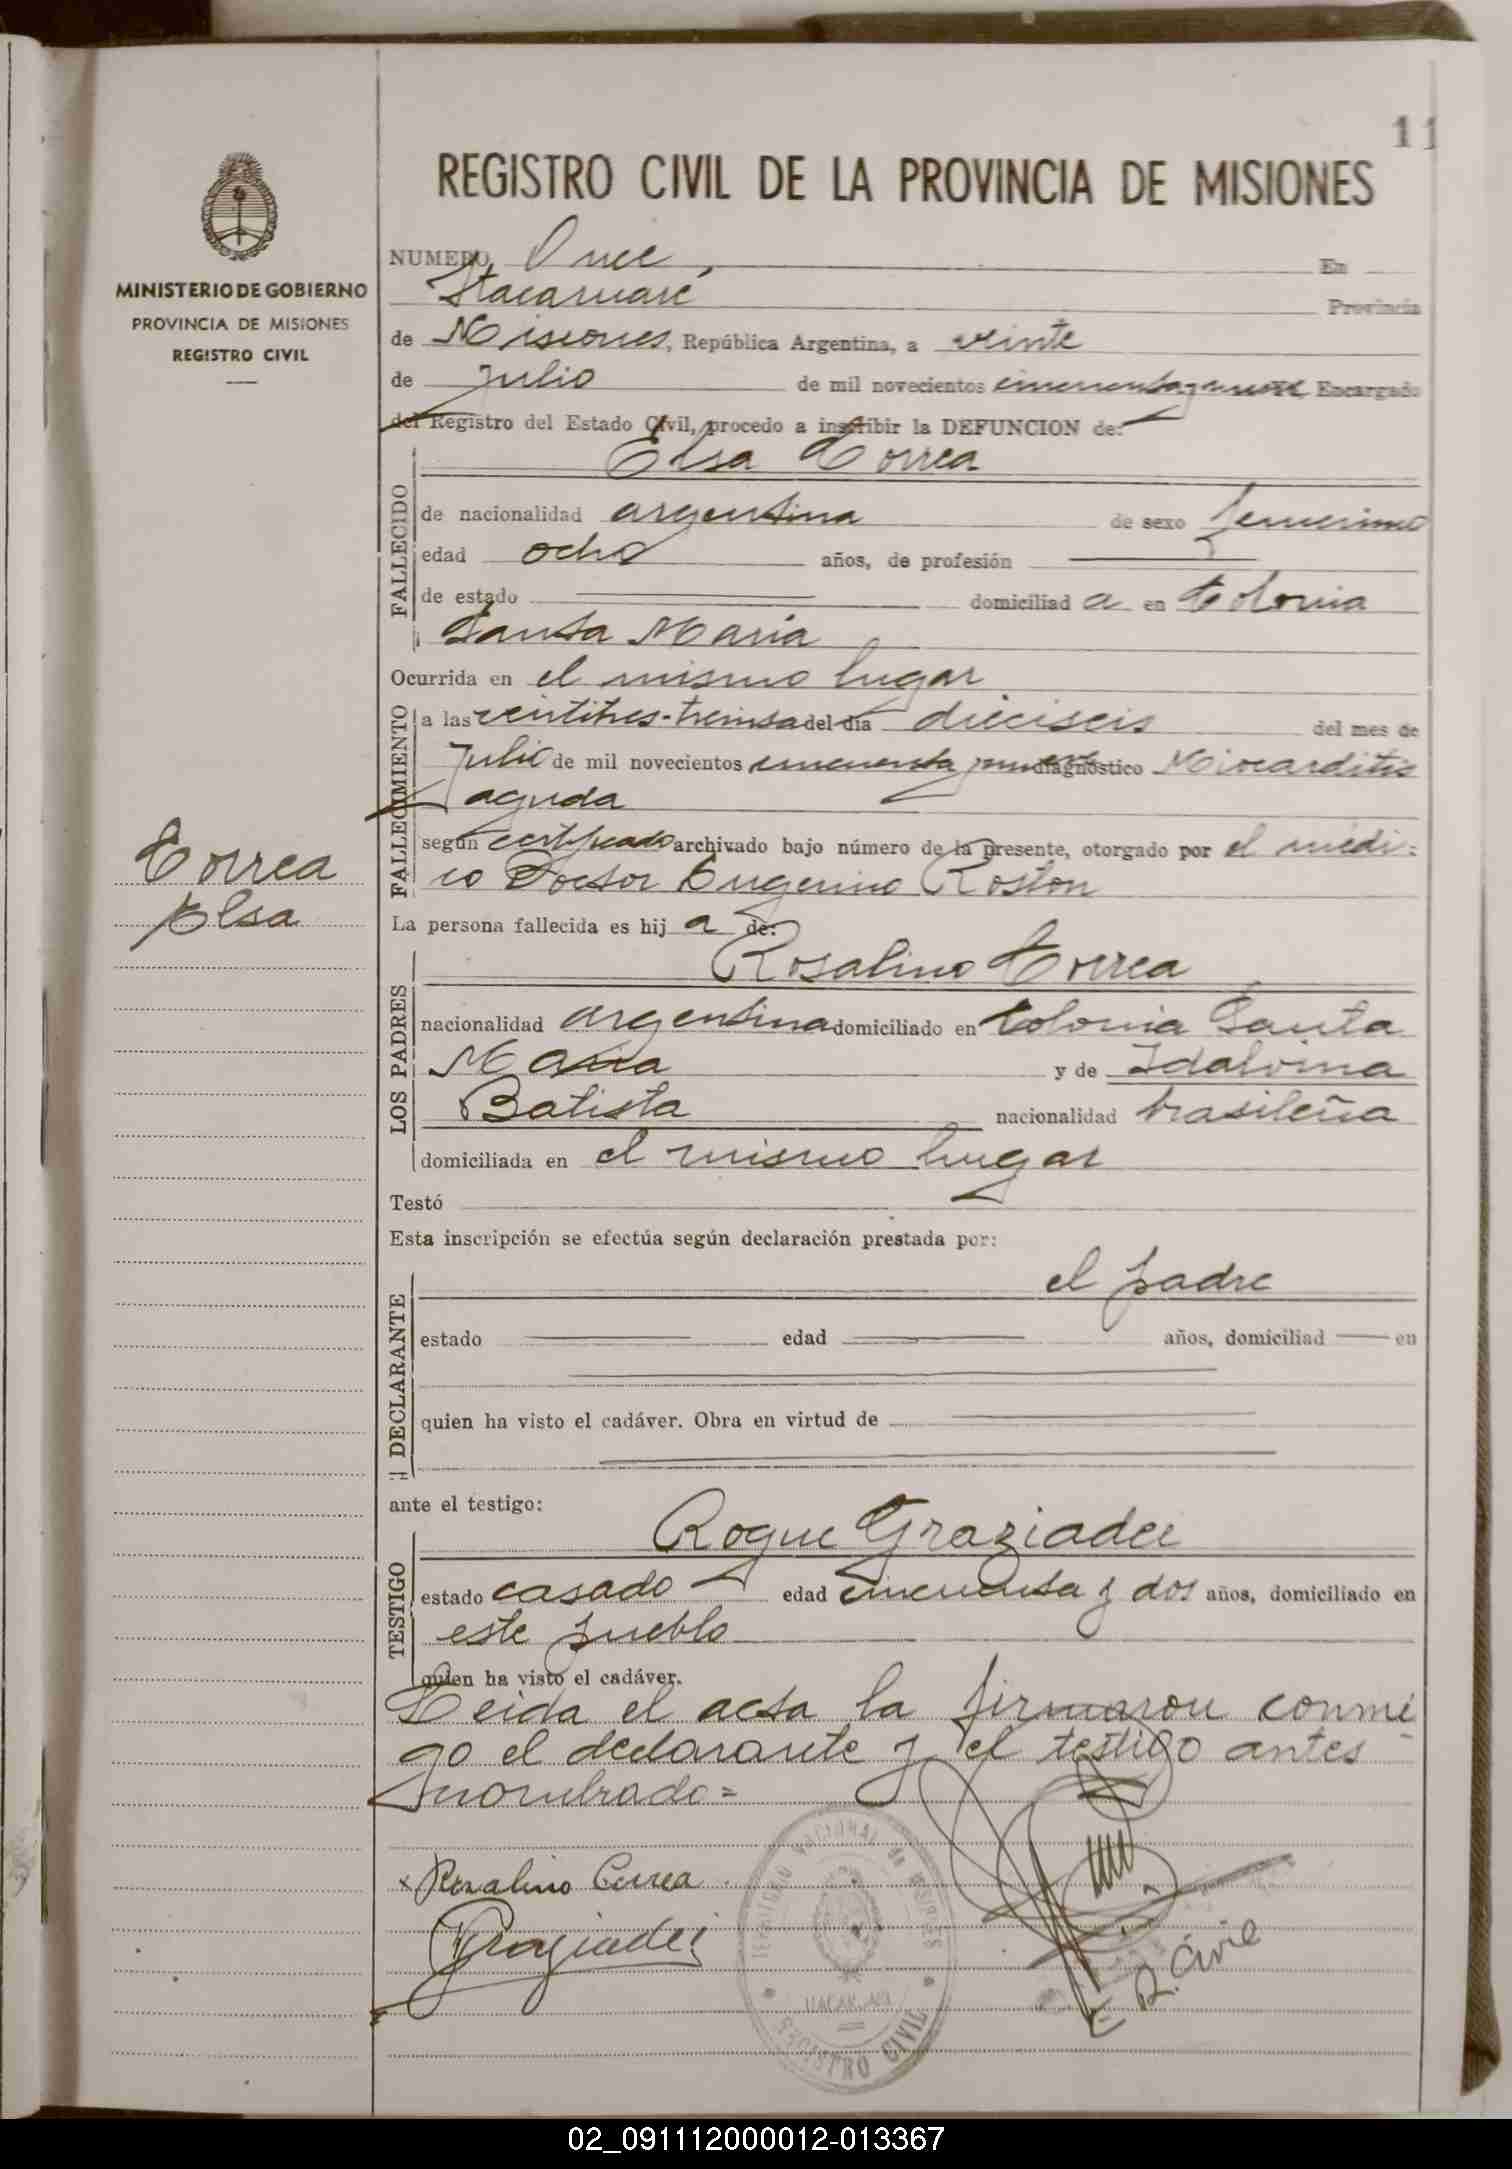 11
REGISTRO CIVIL DE LA PROVINCIA DE MISIONES
MINISTERIO DE GOBIERNO
PROVINCIA DE MISIONES
REGISTRO CIVIL
NUMERO Once, En
Itacaruaré Provincia
de Misiones, República Argentina, a veinte
de Julio de mil novecientos cincuenta y nueve Encargado
del Registro del Estado Civil, procedo a inscribir la DEFUNCION de:
Elsa Correa
FALLECIDO
de nacionalidad argentina de sexo femenino
edad ocho años, de profesión
de estado domiciliad a en Colonia
Santa María
Ocurrida en el mismo lugar
FALLECIMIENTO
a las veintitres-treinta del día dieciseis del mes de
Julio de mil novecientos cincuenta y nueve diagnóstico Miocarditis
aguda
según certificado archivado bajo número de la presente, otorgado por el médi-
co Doctor Eugenino Roston
Correa
Elsa
La persona fallecida es hij a de:
Rosalino Correa
LOS PADRES
nacionalidad argentina domiciliado en Colonia Santa
Maria y de Idalvina
Batista nacionalidad brasileña
domiciliada en el mismo lugar
Testó
Esta inscripción se efectúa según declaración prestada por:
el padre
DECLARANTE
estado edad años, domiciliad en
quien ha visto el cadáver. Obra en virtud de
ante el testigo:
Roque Graziadei
TESTIGO
estado casado edad cincuenta y dos años, domiciliado en
este pueblo
quien ha visto el cadáver.
Leida el acta la firmaron conmi
go el declarante y el testigo antes
nombrado=
x Rosalino Correa
Graziadei
REGISTRO CIVIL
E. R. Civil
02_091112000012-013367